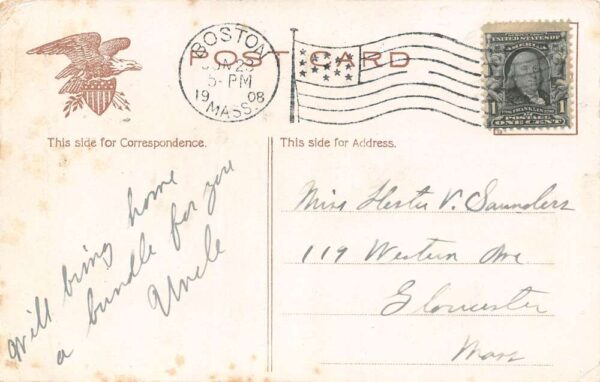 POST CARD
BOSTON
JUN 23
5-PM
1908
MASS.
UNITED STATES
OF AMERICA
FRANKLIN
1 1
POSTAGE
ONE CENT
This side for Correspondence.
This side for Address.
Will bring home
a bundle for you
Uncle
Miss Hester V. Saunders
119 Western Ave
Gloucester
Mass